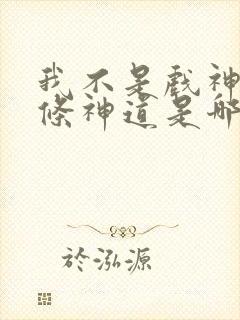 我不是戲神
條神道是哪
於泓源